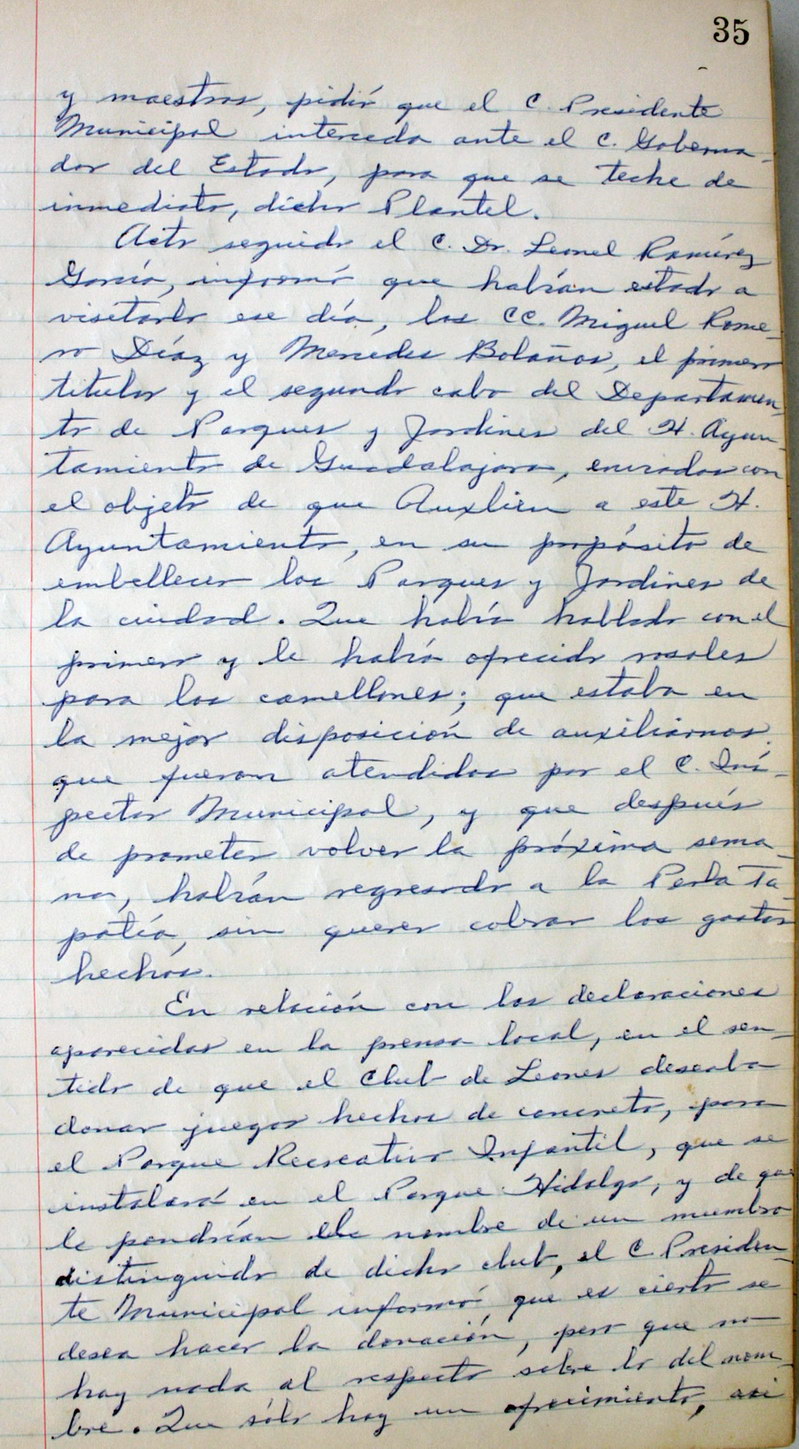 35
y maestros, pidió que el C. Presidente
Municipal interceda ante el C. Goberna-
dor del Estado, para que se teche de
inmediato, dicho Plantel.
Acto seguido el C. Dr. Leonel Ramírez
García, informó que habían estado a
visitarlo ese día, los CC. Miguel Rome-
ro Díaz y Mercedes Bolaños, el primero
titular y el segundo cabo del Departamen-
to de Parques y Jardines del H. Ayun-
tamiento de Guadalajara, enviados con
el objeto de que Auxlien a este H.
Ayuntamiento, en su propósito de
embellecer los Parques y Jardines de
la ciudad. Que había hablado con el
primero y le había ofrecido rosales
para los camellones; que estaba en
la mejor disposición de auxiliarnos.
que fueron atendidos por el C. Ins-
pector Municipal, y que después
de prometer volver la próxima sema-
na, habían regresado a la Perla Ta-
patía, sin querer cobrar los gastos
hechos.
En relación con las declaraciones
aparecidas en la prensa local, en el sen-
tido de que el Club de Leones deseaba
donar juegos hechos de concreto, para
el Parque Recreativo Infantil, que se
instalará en el Parque Hidalgo, y de que
le pondrían el nombre de un miembro
distinguido de dicho club, el C. Presiden-
te Municipal informó, que es cierto se
desea hacer la donación, pero que no
hay nada al respecto sobre lo del nom-
bre. Que sólo hay un ofrecimiento, asi